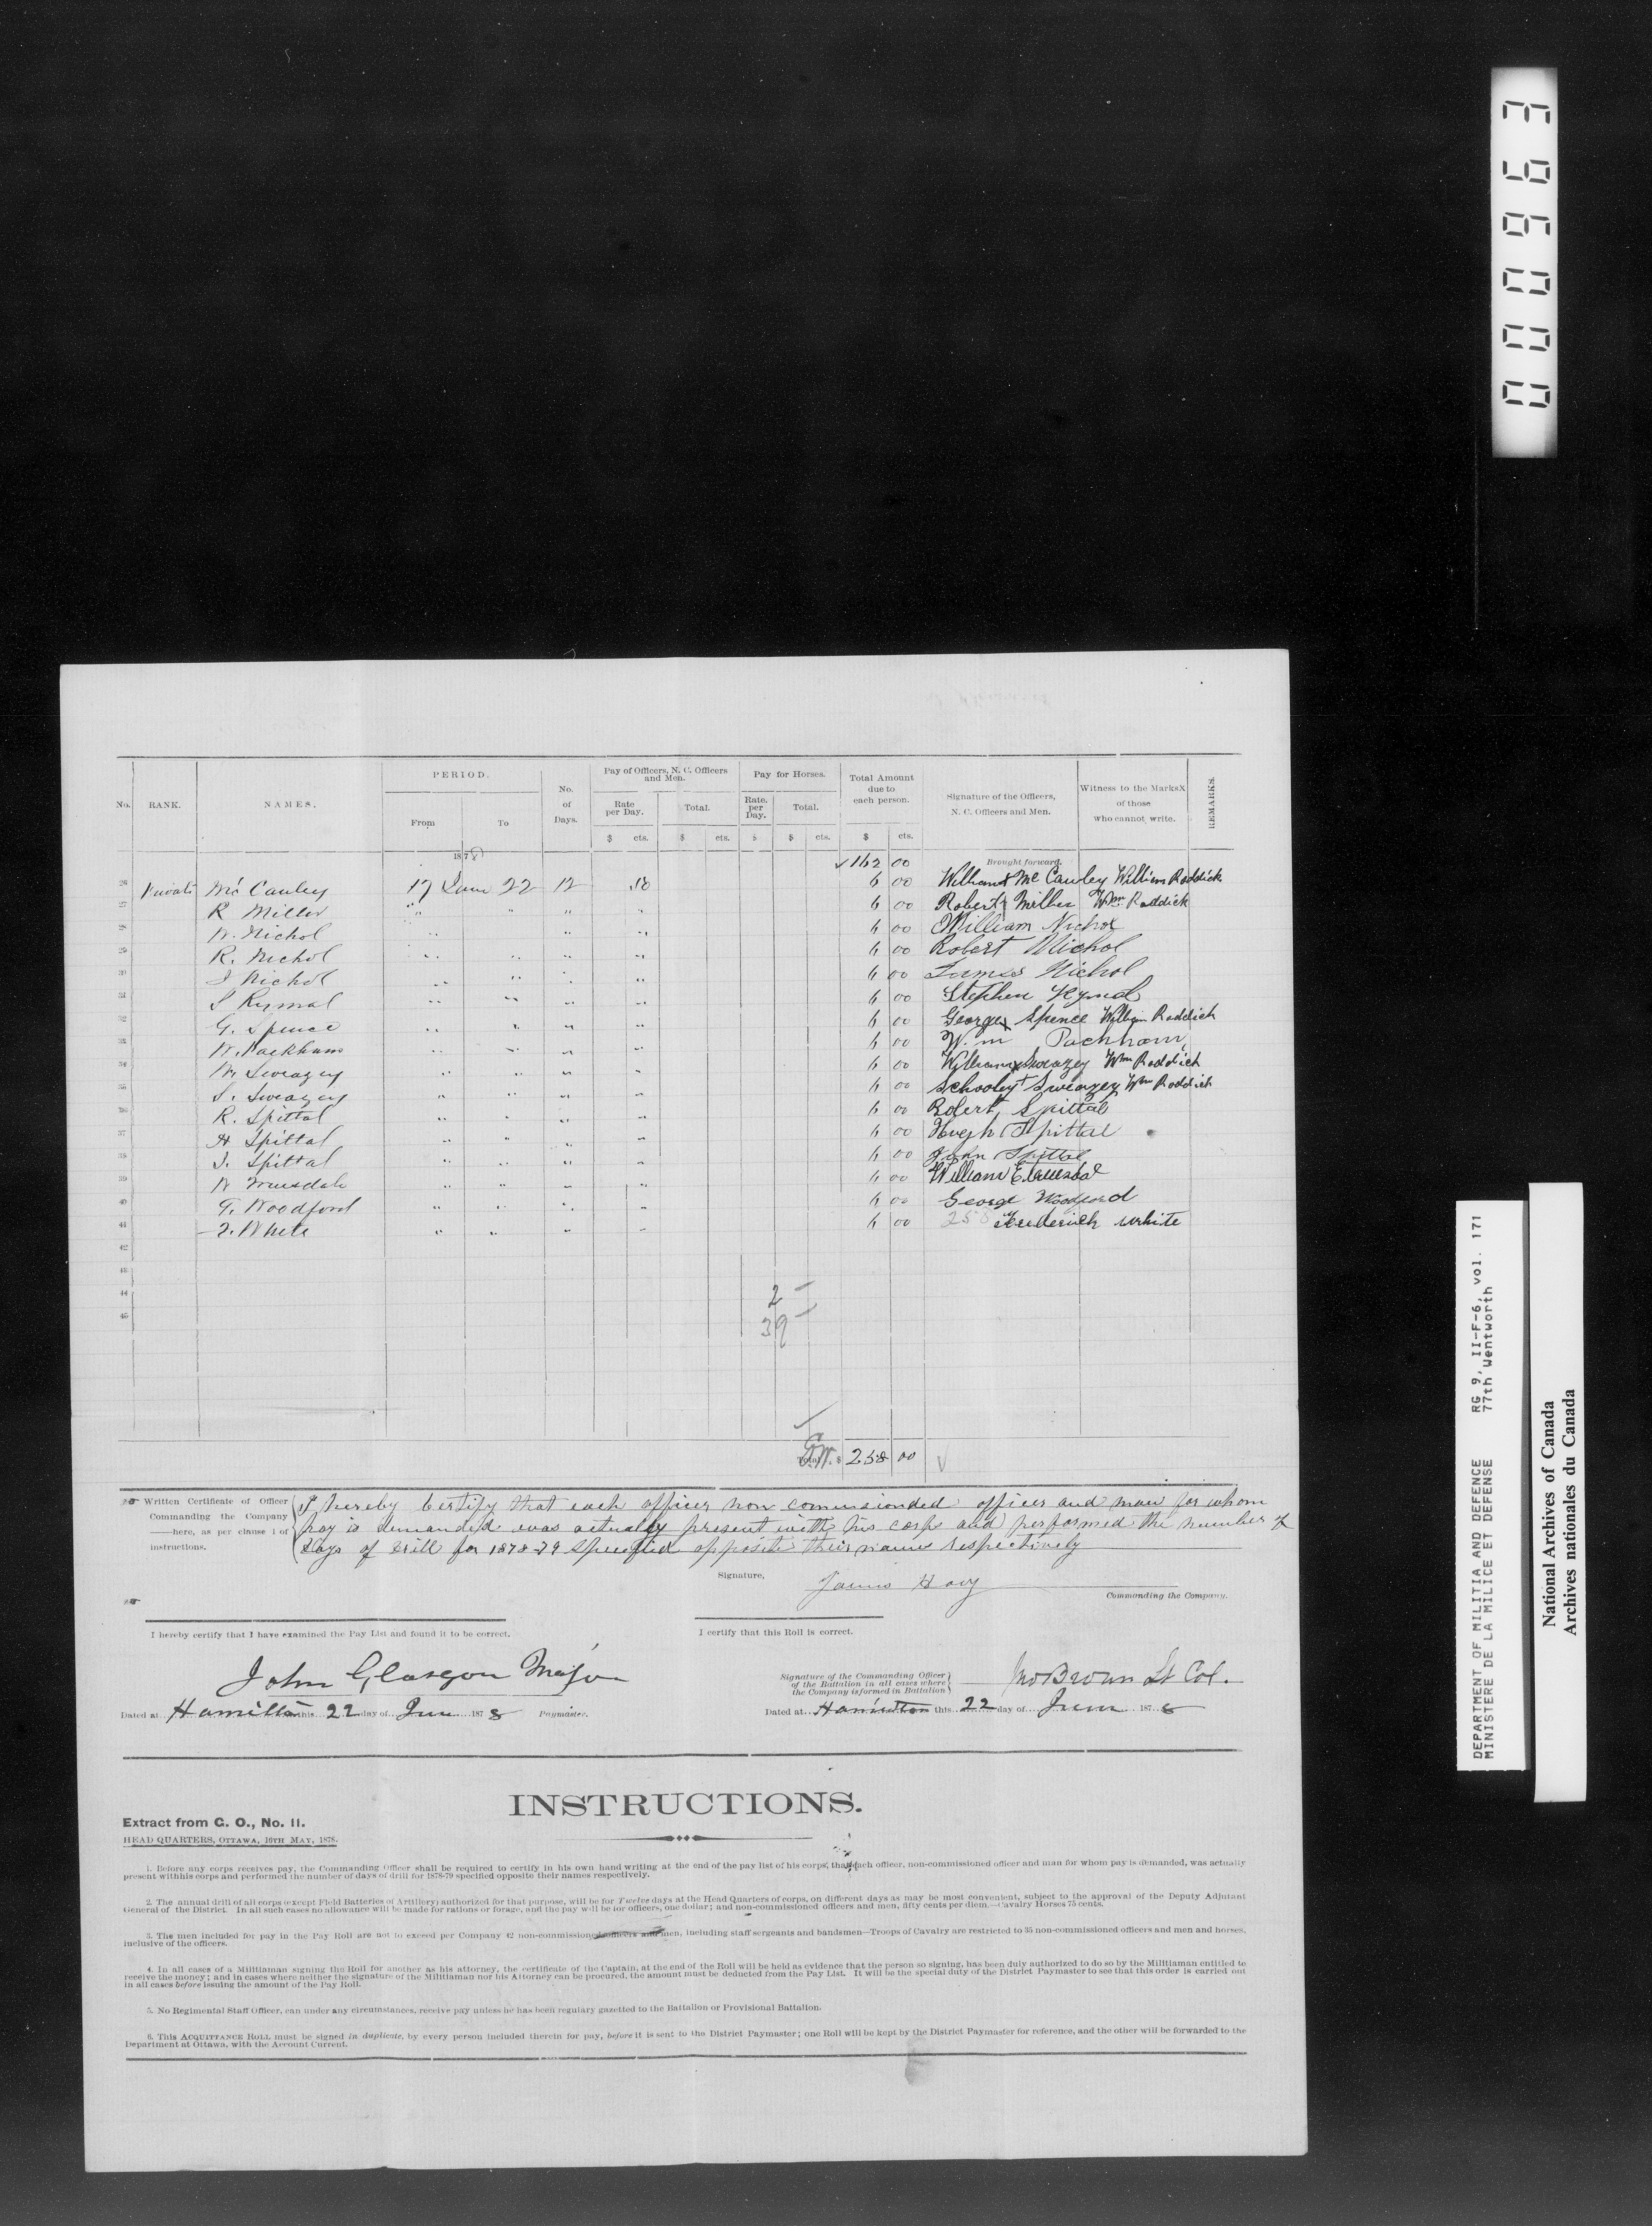 000963
PERIOD.
Pay of Officers, N. C. Officers and Men.
Pay for Horses.
Total Amount due to each person.
No. RANK. NAMES. From To No. of Days. Rate per Day. Total. Rate. per Day. Total. Signature of the Officers, N. C. Officers and Men. Witness to the Marks X of those who cannot write. REMARKS.
$ cts. $ cts. $ $ cts. $ cts.
1878 162 00 Brought forward.
26 Private Mc Cauley 17 June 22 12 .50 6 00 William X Mc Cauley William Roddick
27 R Miller " " " " 6 00 Robert X Miller Wm Roddick
28 W. Nichol " " " 6 00 William Nichol
29 R. Nichol " " " " 6 00 Robert Nichol
30 J Nichol " " " " 6 00 James Nichol
31 S Rymal " " " " 6 00 Stephen Rymal
32 G. Spence " " " " 6 00 George X Spence William Roddick
33 W. Packham " " " " 6 00 Wm Packham
34 W. Sweazey " " " " 6 00 William X Sweazey Wm Roddick
35 S. Sweazey " " " " 6 00 Schooley + Sweazey Wm Roddick
36 R. Spittal " " " " 6 00 Robert Spittal
37 H Spittal " " " " 6 00 Hugh Spittal
38 J. Spittal " " " " 6 00 John Spittal
39 W Truesdale " " " " 6 00 William E. Truesdal
40 G. Woodford " " " " 6 00 George Woodford
41 F. White " " " " 6 00 Frederick White
42
43
44 2
45 39
Total. $ 258 00
Written Certificate of Officer Commanding the Company here, as per clause 1 of instructions.
I hereby Certify that each officer non commissionded officer and man for whom
pay is demanded was actually present with his corps and performed the number of
days of drill for 1878-79 specified opposite their names respectively
Signature, James Hay
Commanding the Company.
I hereby certify that I have examined the Pay List and found it to be correct.
I certify that this Roll is correct.
John Glasgow Major
Signature of the Commanding Officer of the Battalion in all cases where the Company is formed in Battalion
Jno Brown Lt Col.
Dated at Hamilton this 22 day of June 1878 Paymaster.
Dated at Hamilton this 22 day of June 1878
INSTRUCTIONS.
Extract from G. O., No. 11.
HEAD QUARTERS, OTTAWA, 16TH MAY, 1878.
1. Before any corps receives pay, the Commanding Officer shall be required to certify in his own hand writing at the end of the pay list of his corps, that each officer, non-commissioned officer and man for whom pay is demanded, was actually
present with his corps and performed the number of days of drill for 1878-79 specified opposite their names respectively.
2. The annual drill of all corps (except Field Batteries of Artillery) authorized for that purpose, will be for Twelve days at the Head Quarters of corps, on different days as may be most convenient, subject to the approval of the Deputy Adjutant
General of the District. In all such cases no allowance will be made for rations or forage, and the pay will be for officers, one dollar; and non-commissioned officers and men, fifty cents per diem.—Cavalry Horses 75 cents.
3. The men included for pay in the Pay Roll are not to exceed per Company 42 non-commissioned officers and men, including staff sergeants and bandsmen—Troops of Cavalry are restricted to 35 non-commissioned officers and men and horses,
inclusive of the officers.
4. In all cases of a Militiaman signing the Roll for another as his attorney, the certificate of the Captain, at the end of the Roll will be held as evidence that the person so signing, has been duly authorized to do so by the Militiaman entitled to
receive the money; and in cases where neither the signature of the Militiaman nor his Attorney can be procured, the amount must be deducted from the Pay List. It will be the special duty of the District Paymaster to see that this order is carried out
in all cases before issuing the amount of the Pay Roll.
5. No Regimental Staff Officer, can under any circumstances, receive pay unless he has been regulary gazetted to the Battalion or Provisional Battalion.
6. This ACQUITTANCE ROLL must be signed in duplicate, by every person included therein for pay, before it is sent to the District Paymaster; one Roll will be kept by the District Paymaster for reference, and the other will be forwarded to the
Department at Ottawa, with the Account Current.
DEPARTMENT OF MILITIA AND DEFENCE RG 9, II-F-6, vol. 171
MINISTERE DE LA MILICE ET DEFENSE 77th Wentworth
National Archives of Canada
Archives nationales du Canada